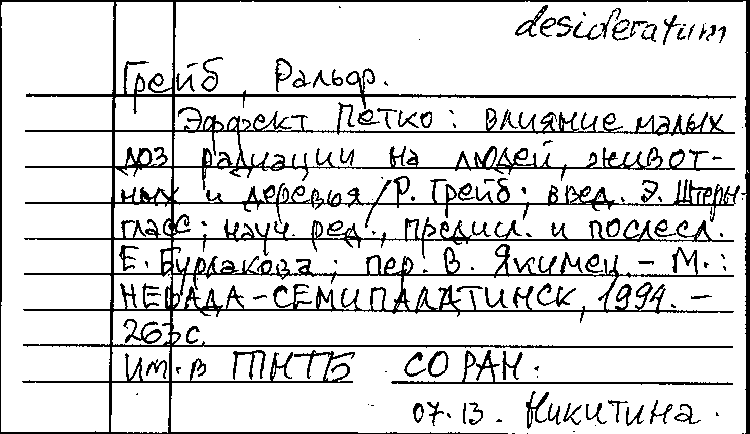 desideratum
Грейб, Ральф.
Эффект Петко: влияние малых
доз радиации на людей, живот-
ных и деревья / Р. Грейб; введ. Э. Штерн-
гласс; науч. ред., предисл. и послесл.
Е. Бурлакова; пер. В. Якимец. - М.:
НЕВАДА-СЕМИПАЛАТИНСК, 1994. -
263 с.
Им. в ГПНТБ СО РАН.
07.13. Никитина.